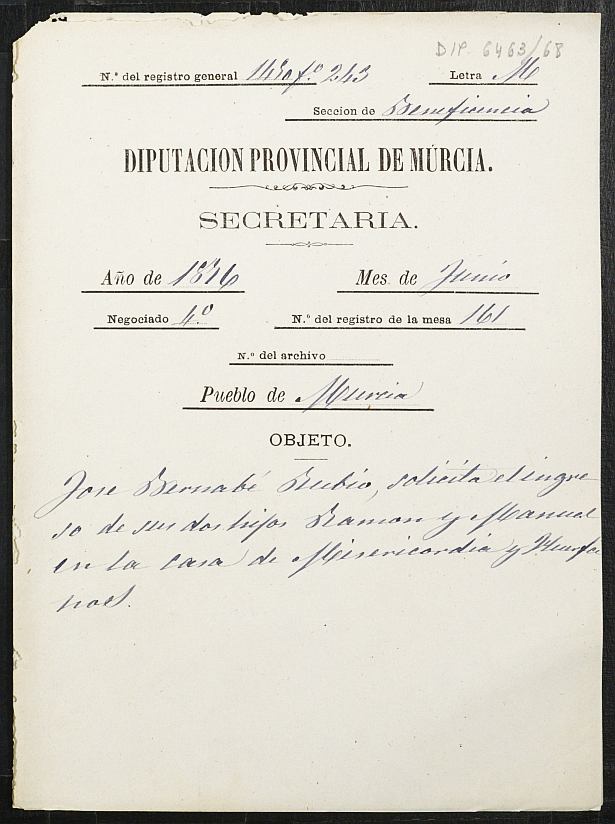 DIP. 6463/68
N.º del registro general 1430 f.º 243 Letra M
Seccion de Beneficencia
DIPUTACION PROVINCIAL DE MÚRCIA.
SECRETARIA.
Año de 1876 Mes de Junio
Negociado 4.º N.º del registro de la mesa 161
N.º del archivo
Pueblo de Murcia
OBJETO.
Jose Bernabé Rubio, solicita el ingre
so de sus dos hijos Ramon y Manuel
en la casa de Misericordia y Huerfa
nos.